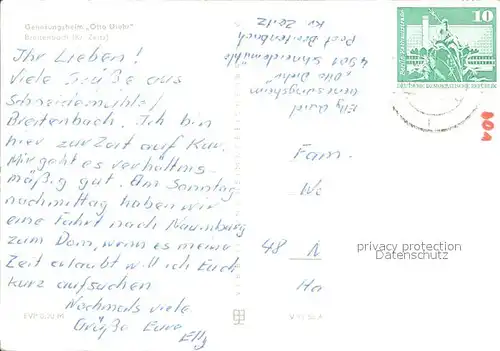 Genesungsheim „Otto Diehr"
Breitenbach (Kr. Zeitz)
Ihr Lieben!
Viele Grüße aus
Schneidemühle/
Breitenbach. Ich bin
hier zur Zeit auf Kur.
Mir geht es verhältnis-
mäßig gut. Am Sonntag
nachmittag haben wir
eine Fahrt nach Naumburg
zum Dom, wenn es meine
Zeit erlaubt will ich Euch
kurz aufsuchen
Nochmals viele
Grüße Eure
Elly
Elly
Genesungsheim
"Otto Diehr"
4901 Schneidemühle
Post Breitenbach
Kr. Zeitz
10
DEUTSCHE DEMOKRATISCHE REPUBLIK
Fam.
We
48 N
Ha
privacy protection
Datenschutz